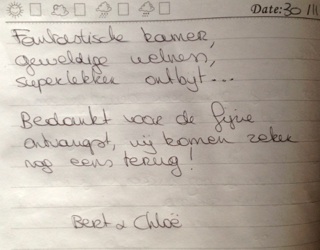 Date: 30 III
Fantastische kamer,
geweldige welness,
superlekker ontbyt...
Bedankt voor de fijne
ontvangst, wij komen zeker
nog eens terug!
Bert & Chloë